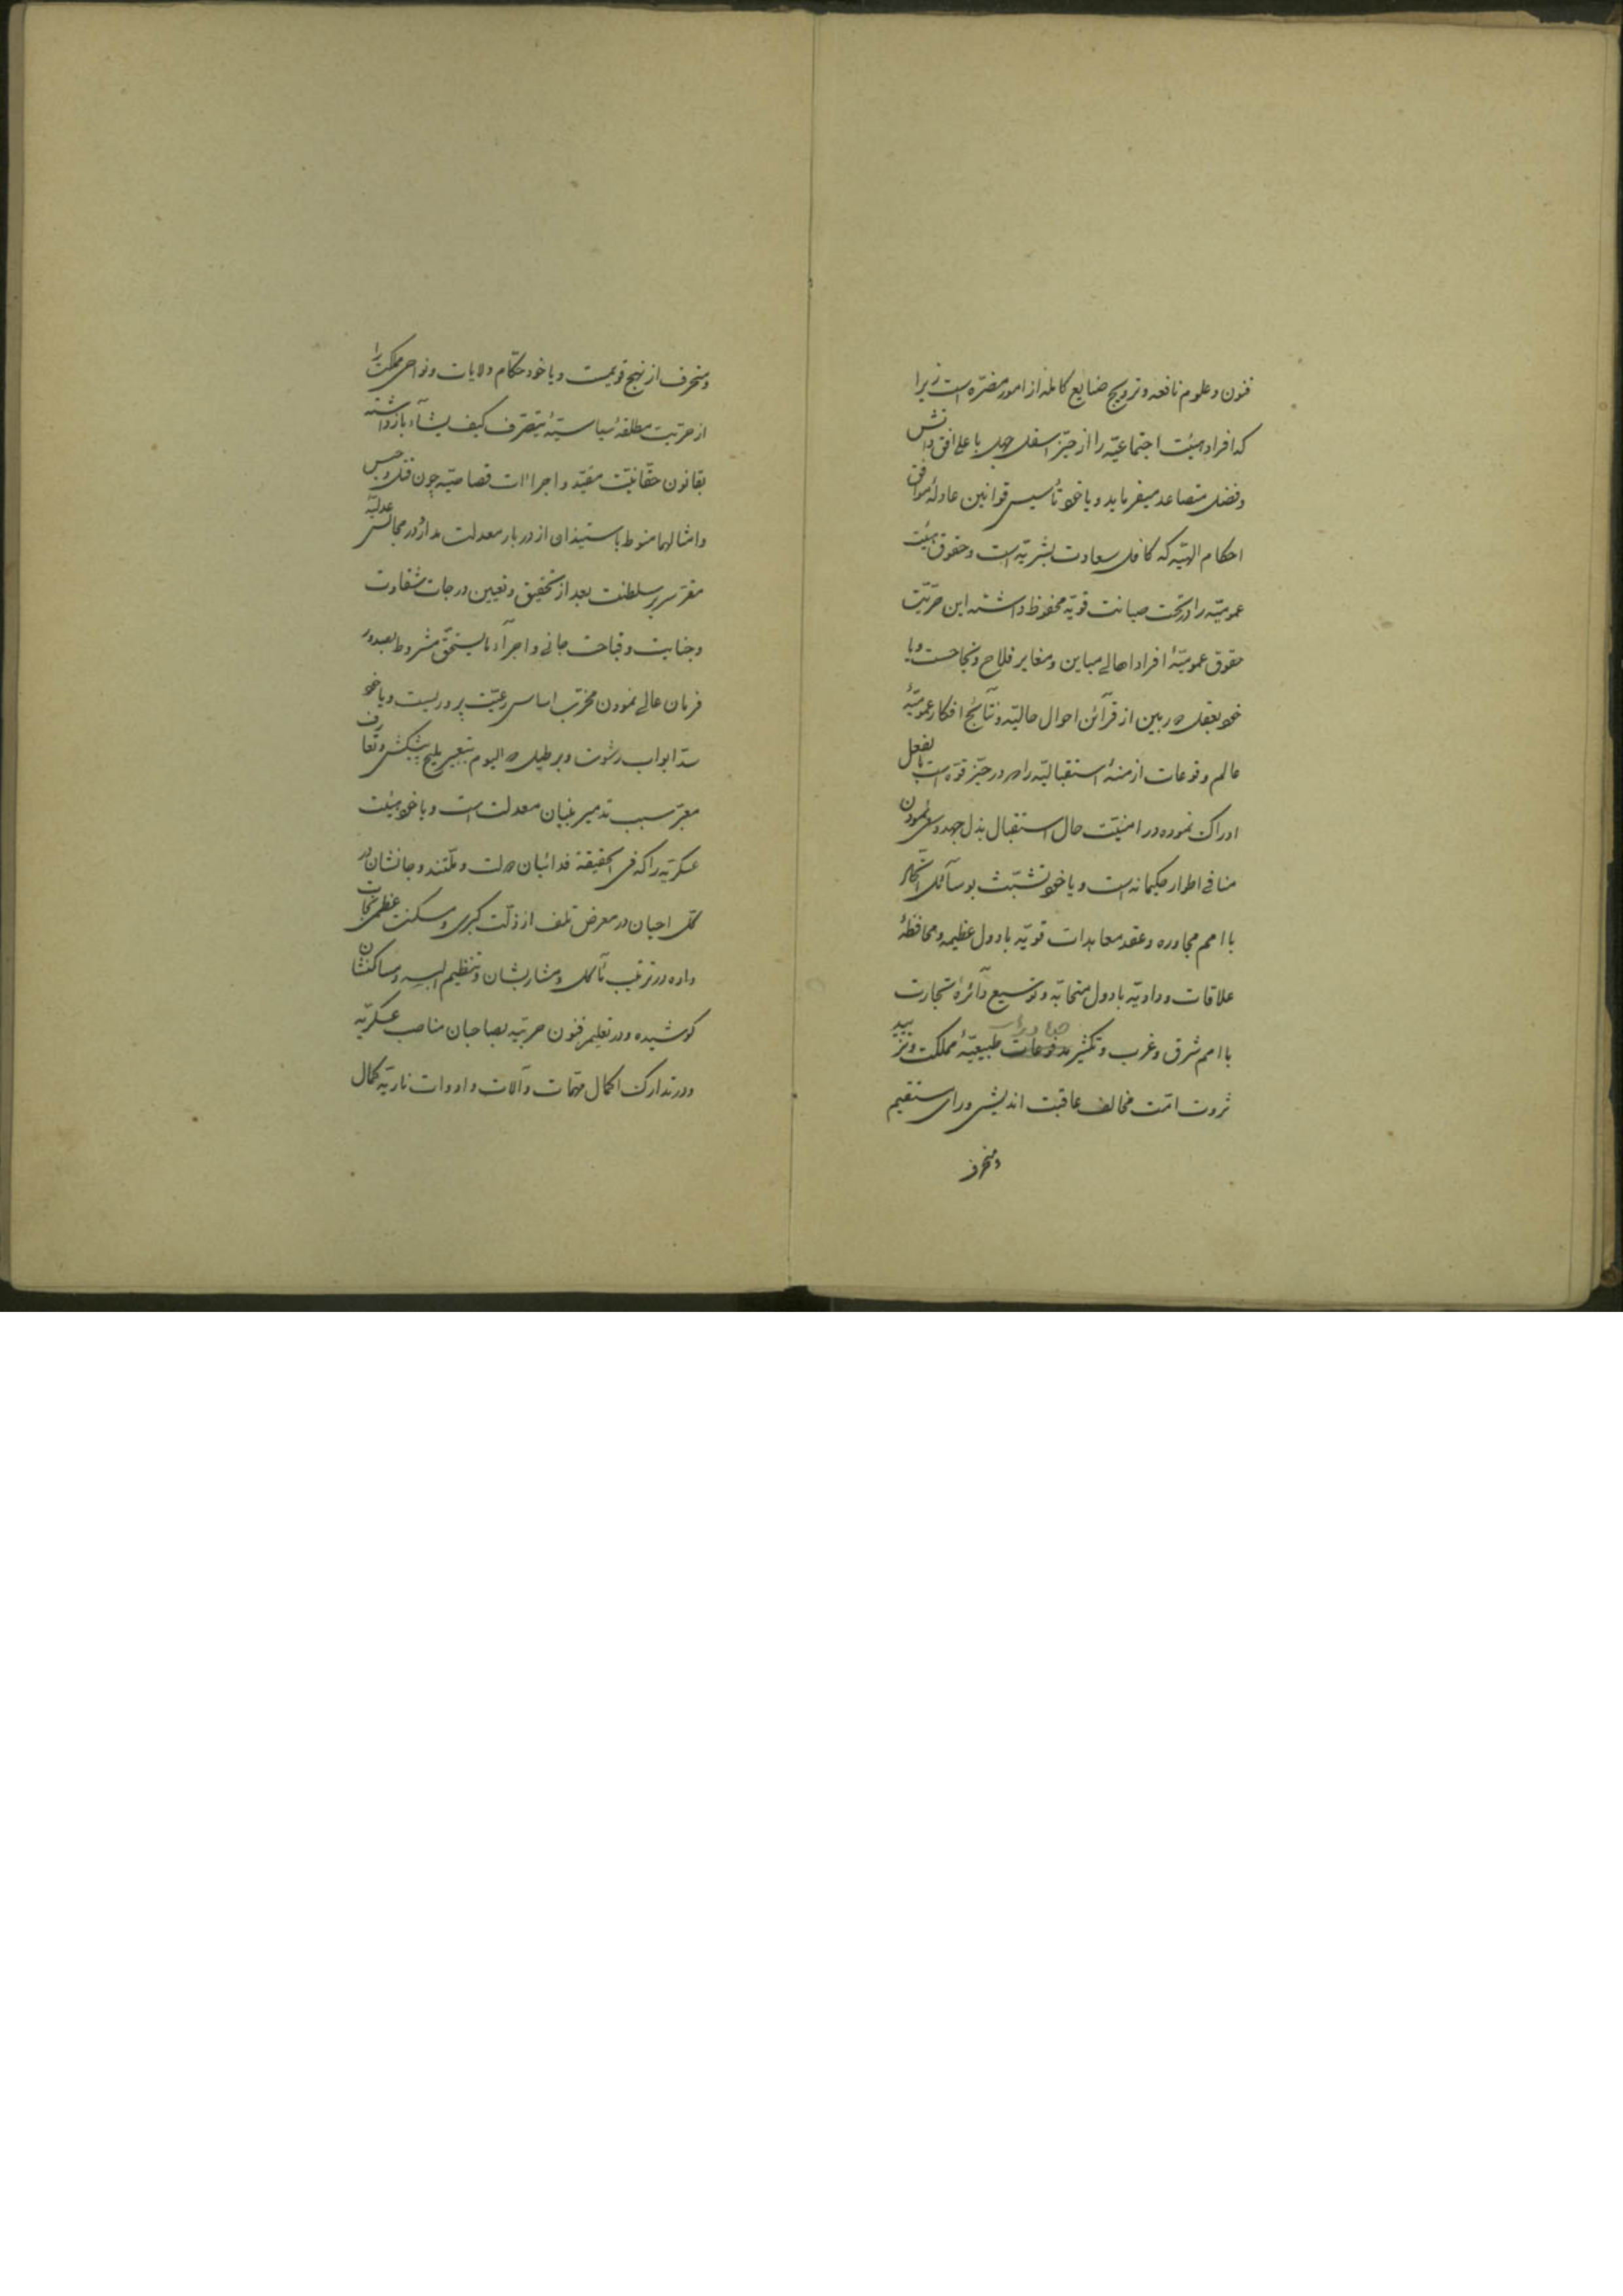 فنون و علوم نافعه و ترویج صنایع کامله از امور مضرّه است زیرا
که افراد هیئت اجتماعیّه را از حیّز اسفل جهل باعلی افق دانش
و فضل متصاعد میفرماید و یا خود تأسیس قوانین عادلهٔ موافق
احکام الهیّه که کافل سعادت بشریّه است و حقوق هیئت
عمومیّه را در تحت صیانت قویّه محفوظ داشته این حرّیّت
حقوق عمومیّهٔ افراد اهالی مباین و مغایر فلاح و نجاحست و یا
خود بعقل دوربین از قرآئن احوال حالیّه و نتآئج افکار عمومیّهٔ
عالم وقوعات ازمنهٔ استقبالیّه را که در حیّز قوّه است بالفعل
ادراک نموده در امنیّت حال استقبال بذل جهد و سعی نمودن
منافی اطوار حکیمانه است و یا خود تشبّث بوسآئل اتّحاد
با امم مجاوره و عقد معاهدات قویّه با دول عظیمه و محافظهٔ
علاقات ودادیّه با دول متحابّه و توسیع دآئرهٔ تجارت
با امم شرق و غرب و تکثیر مدفوعات طبیعیّهٔ مملکت و تزیید
صادرات
ثروت امّت مخالف عاقبت اندیشی و رای مستقیم
و منحرف
و منحرف از نهج قویمست و یا خود حکّام ولایات و نواحی مملکت را
از حرّیّت مطلقهٔ سیاسیّهٔ یتصرّف کیف یشآء بازداشته
بقانون حقّانیّت مقیّد و اجراات قصاصیّه چون قتل و حبس
و امثالهما منوط باستیذان از دربار معدلت مدار و در مجالس عدلیّه
مقرّ سریر سلطنت بعد از تحقیق و تعیین درجات شقاوت
و جنایت و قباحت جانی و اجرآء ما یستحقّ مشروط بصدور
فرمان عالی نمودن مخرّب اساس رعیّت پروریست و یا خود
سدّ ابواب رشوت و برطیل که الیوم بتعبیر ملیح پیشکش و تعارف
معبّر سبب تدمیر بنیان معدلت است و یا خود هیئت
عسکریّه را که فی الحقیقة فدائیان دولت و ملّتند و جانشان در
کلّ احیان در معرض تلف از ذلّت کبری و مسکنت عظمی نجات
داده در ترتیب مآکل و مشاربشان و تنظیم البسه و مساکنشان
کوشیده و در تعلیم فنون حربیّه بصاحبان مناصب عسکریّه
و در تدارک اکمال مهمّات و آلات و ادوات ناریّه کمال